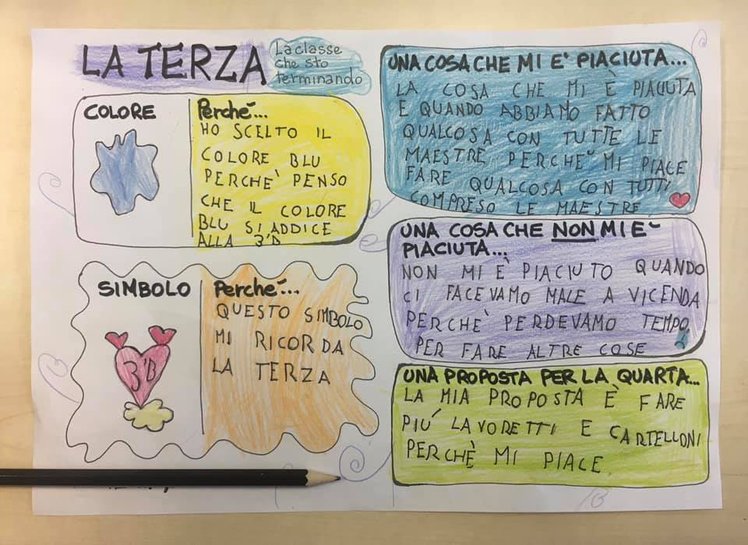 LA TERZA
La classe
che sto
terminando
COLORE
Perché...
HO SCELTO IL
COLORE BLU
PERCHE' PENSO
CHE IL COLORE
BLU SI ADDICE
ALLA 3'B
SIMBOLO
3'B
Perché...
QUESTO SIMBOLO
MI RICORDA
LA TERZA
UNA COSA CHE MI E' PIACIUTA...
LA COSA CHE MI È PIACIUTA
E QUANDO ABBIAMO FATTO
QUALCOSA CON TUTTE LE
MAESTRE PERCHE' MI PIACE
FARE QUALCOSA CON TUTTI
COMPRESO LE MAESTRE
UNA COSA CHE NON MI E'
PIACIUTA...
NON MI È PIACIUTO QUANDO
CI FACEVAMO MALE A VICENDA
PERCHE' PERDEVAMO TEMPO
PER FARE ALTRE COSE
UNA PROPOSTA PER LA QUARTA...
LA MIA PROPOSTA È FARE
PIÚ LAVORETTI E CARTELLONI
PERCHÈ MI PIACE